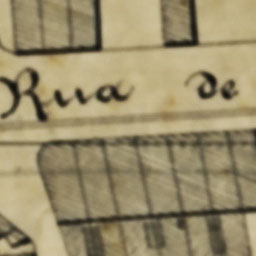 Rua de